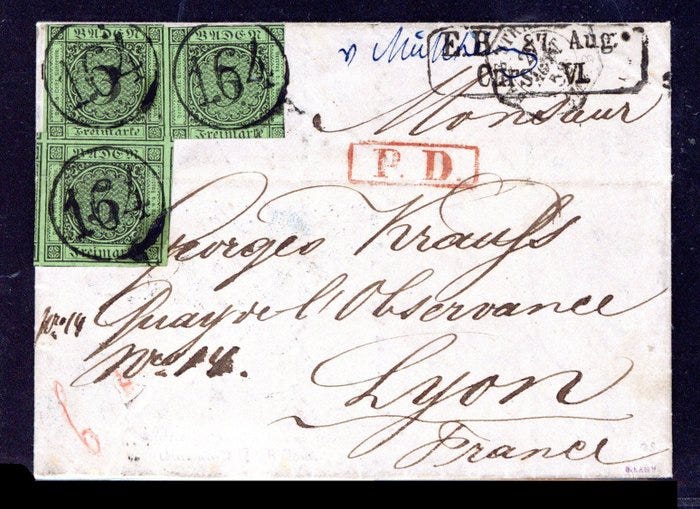 BADEN
164
Freimarke
BADEN
164
Freimarke
BADEN
164
Freimarke
E.B. 27 Aug.
Curs VI.
Monsieur
P. D.
Georges Krauss
Quay de l'Observance
Nro 14
Nro 14.
Lyon
France
6